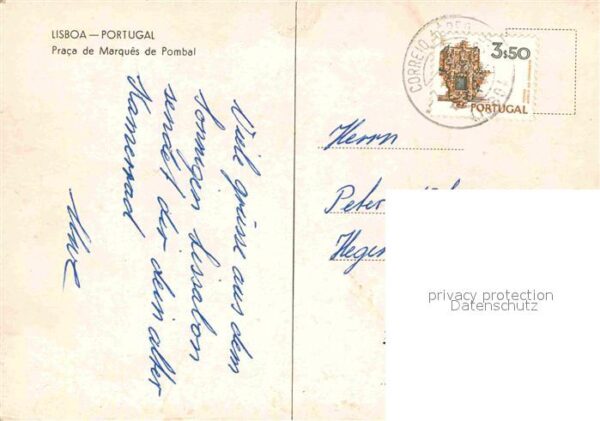 LISBOA — PORTUGAL
Praça de Marquês de Pombal
Viele grüsse aus dem
Sonnigen Lissabon
sendet dir dein alter
Kamerrad
CORREIO
3$50
PORTUGAL
Herrn
Peter
Hegen
privacy protection
Datenschutz